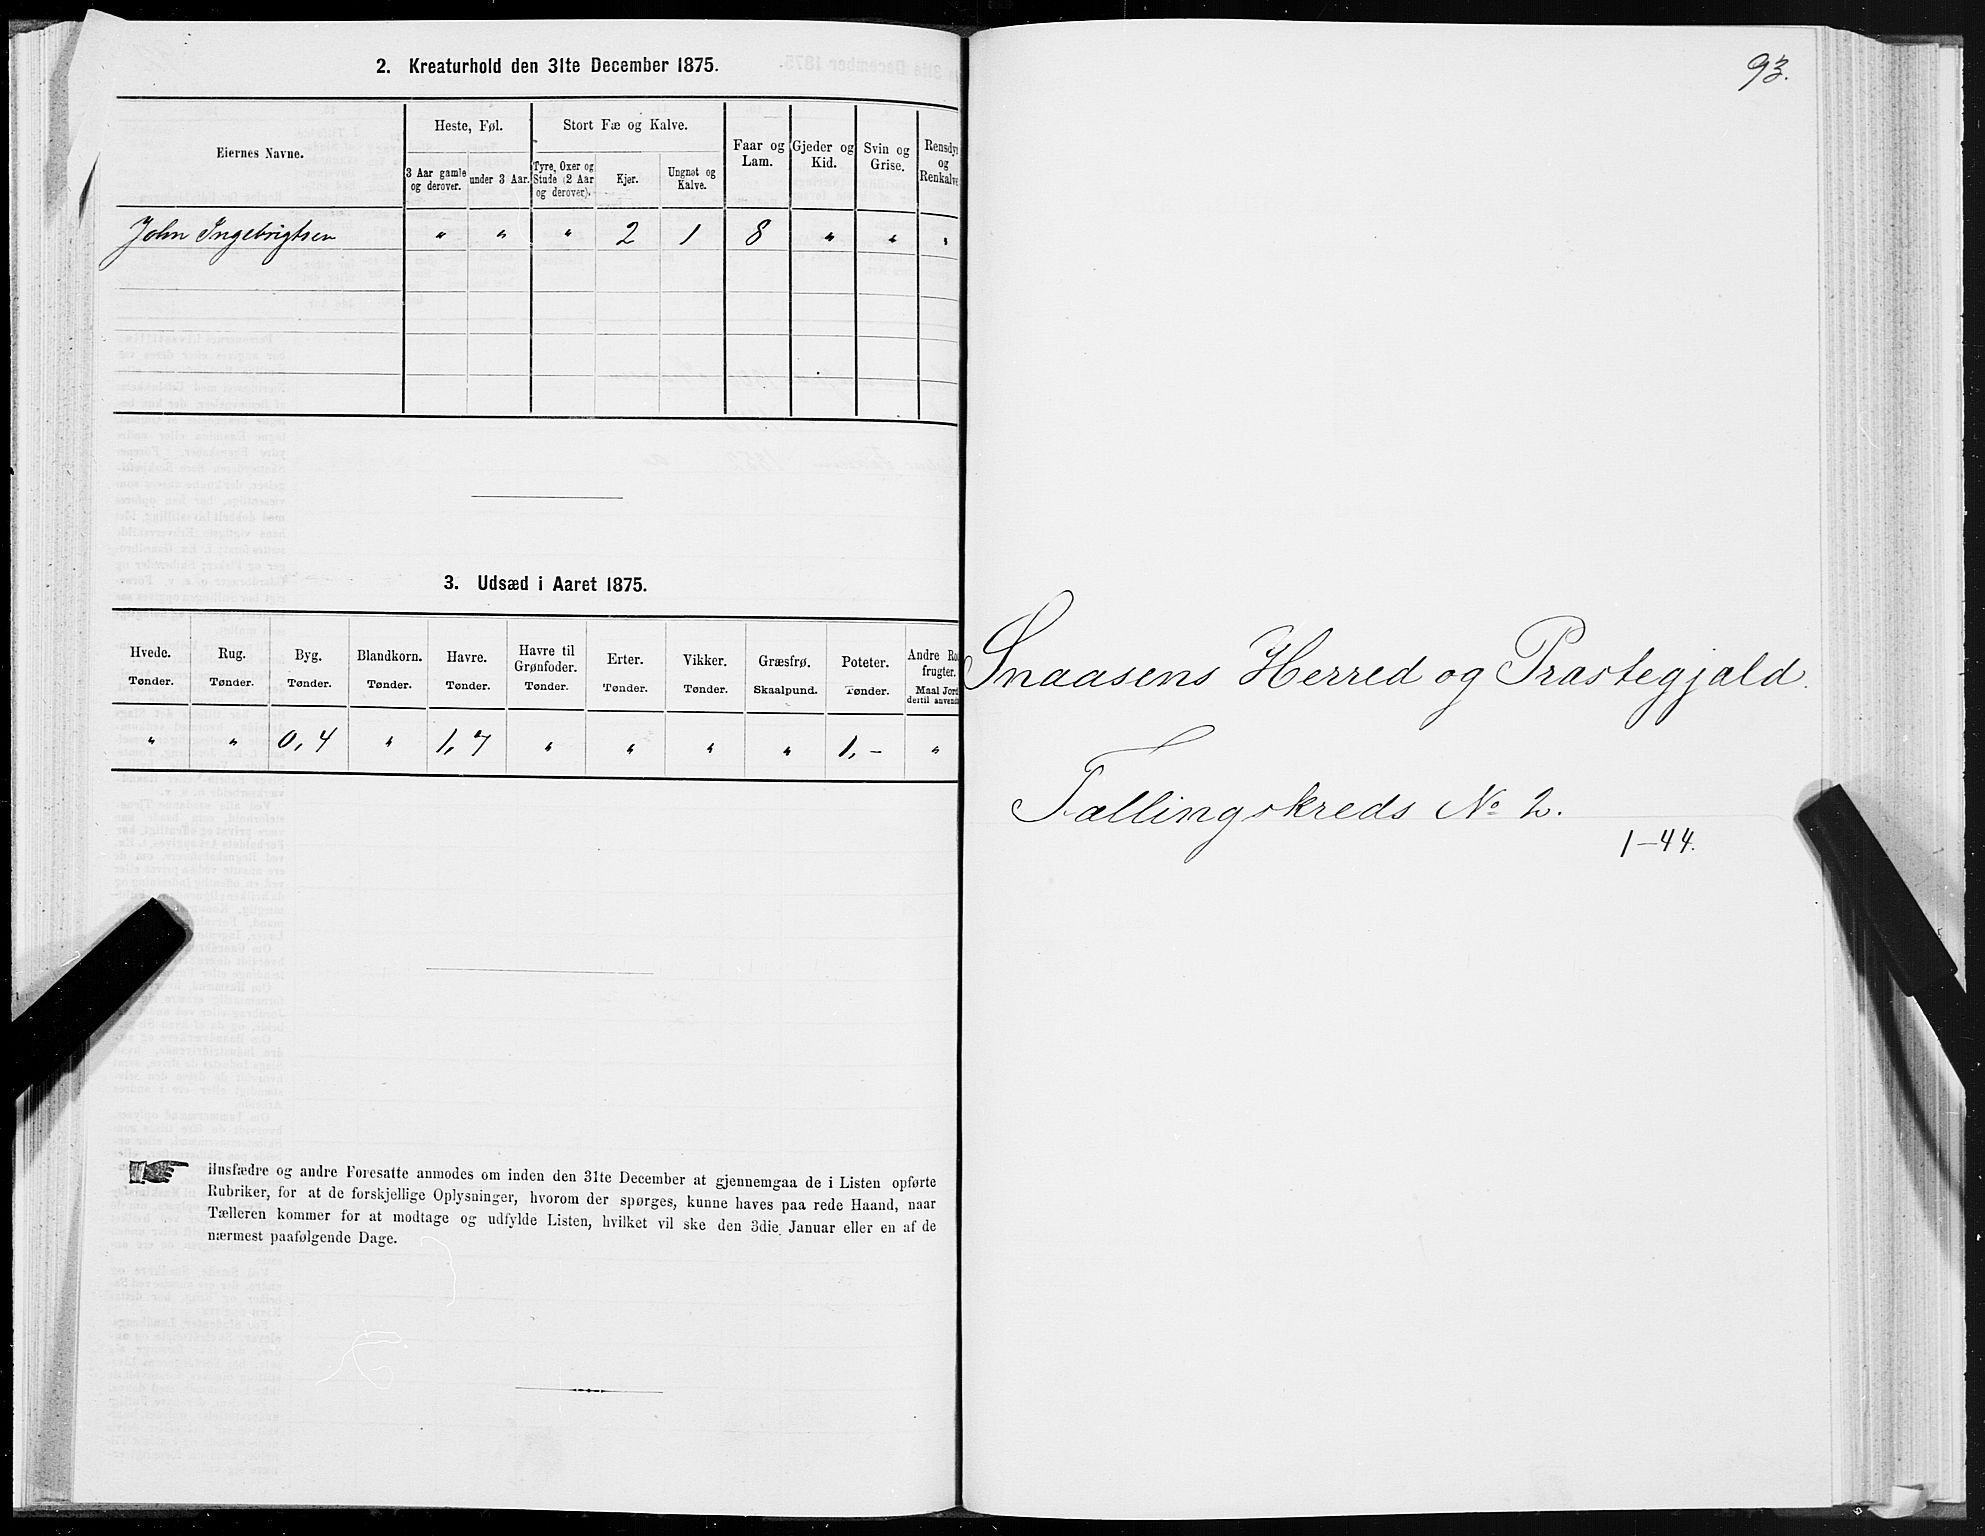 2. Kreaturhold den 31te December 1875.
Eiernes Navne.
Heste, Føl.
Stort Fæ og Kalve.
Faar og Lam.
Gjeder og Kid.
Svin og Grise.
Rensdyr og Renkalve
3 Aar gamle og derover.
under 3 Aar.
Tyre, Oxer og Stude (2 Aar og derover).
Kjør.
Ungnøt og Kalve.
John Ingebrigtsen " " " 2 1 8 " " "
3. Udsæd i Aaret 1875.
Hvede. Rug. Byg. Blandkorn. Havre. Havre til Grønfoder. Erter. Vikker. Græsfrø. Poteter. Andre Ro frugter.
Tønder. Tønder. Tønder. Tønder. Tønder. Tønder. Tønder. Tønder. Skaalpund. Tønder. Maal Jord dertil anvend
" " 0,4 " 1,7 " " " " 1,- "
Husfædre og andre Foresatte anmodes om inden den 31te December at gjennemgaa de i Listen opførte
Rubriker, for at de forskjellige Oplysninger, hvorom der spørges, kunne haves paa rede Haand, naar
Tælleren kommer for at modtage og udfylde Listen, hvilket vil ske den 3die Januar eller en af de
nærmest paafølgende Dage.
93.
Snaasens Herred og Præstegjæld.
Tællingskreds No 2.
1-44.